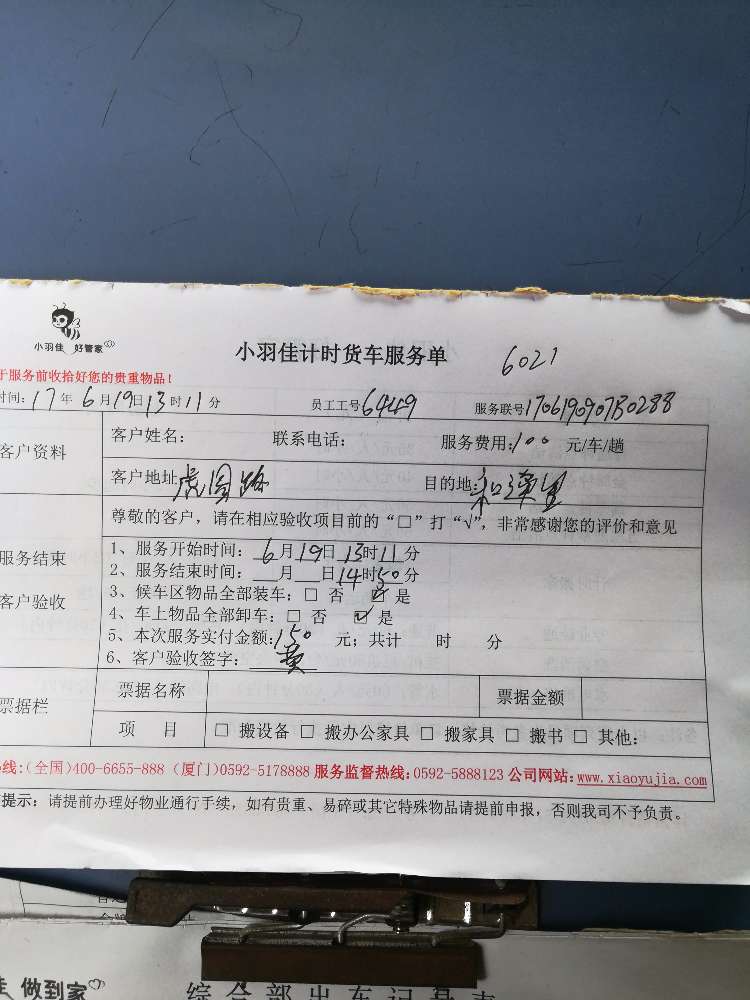 小羽佳 好管家
小羽佳计时货车服务单 6021
于服务前收拾好您的贵重物品！
时间：17年6月19日13时11分 员工工号6449 服务联号170619090780288
客户资料
客户姓名： 联系电话： 服务费用：100 元/车/趟
客户地址：虎园路 目的地：和溪里
尊敬的客户，请在相应验收项目前的“□”打“√”，非常感谢您的评价和意见
服务结束
客户验收
1、服务开始时间：6月19日13时11分
2、服务结束时间： 月 日14时50分
3、候车区物品全部装车：□ 否 ☑ 是
4、车上物品全部卸车：□ 否 ☑ 是
5、本次服务实付金额：150 元；共计 时 分
6、客户验收签字：黄
票据栏
票据名称 票据金额
项 目 □ 搬设备 □ 搬办公家具 □ 搬家具 □ 搬书 □ 其他：
线：(全国)400-6655-888 (厦门)0592-5178888 服务监督热线：0592-5888123 公司网站：www.xiaoyujia.com
提示：请提前办理好物业通行手续，如有贵重、易碎或其它特殊物品请提前申报，否则我司不予负责。
佳 做到家
综合部出车记录表